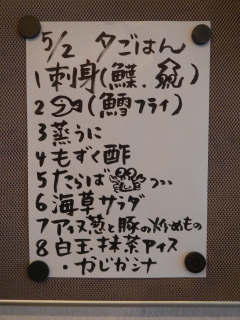 5/2 夕ごはん
1 刺身(鰈、
2 (鱈フライ)
3 蒸うに
4 もずく酢
5 たらば つ…
6 海草サラダ
7 アイヌ葱と豚の炒めもの
8 白玉.抹茶アイス
・かじかジナ